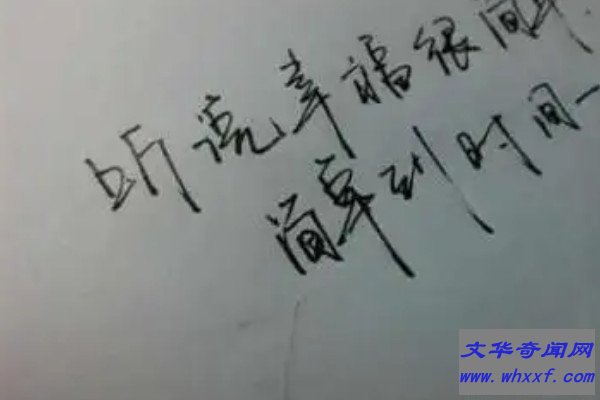 听说幸福很简单
简单到时间一
文华奇闻网
www.whxxf.com